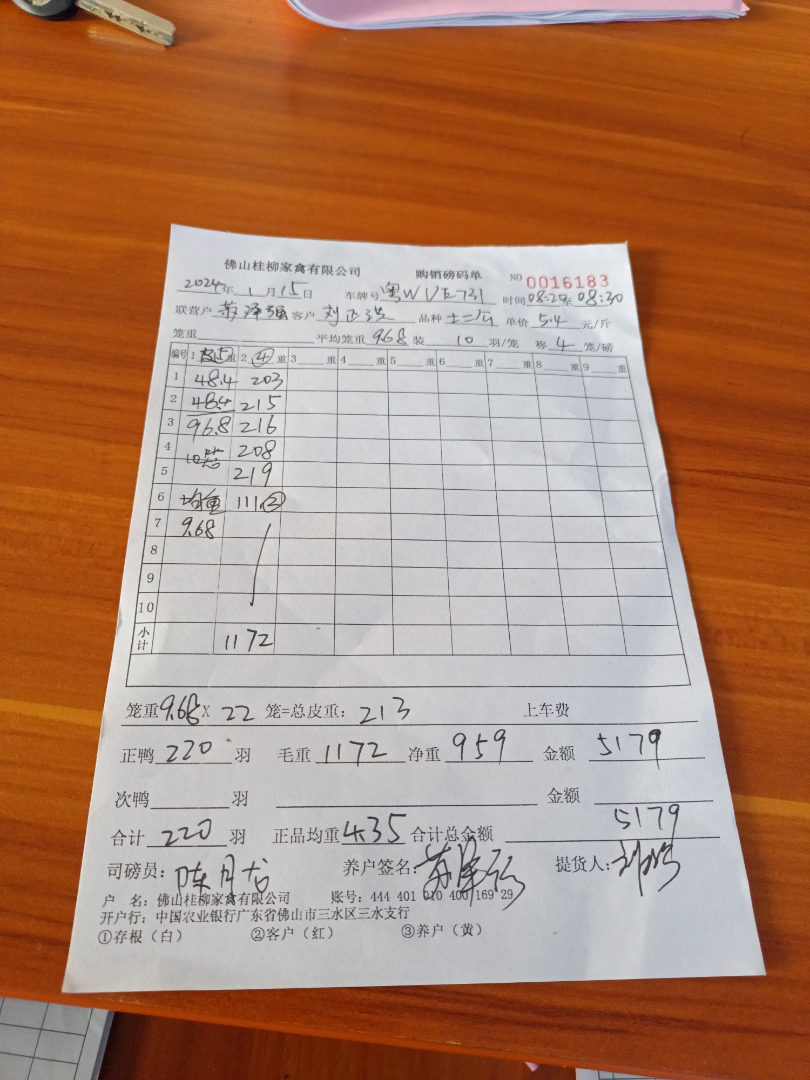 佛山桂柳家禽有限公司 购销磅码单 NO 0016183
2024年 1月15日 车牌号 粤WVE731 时间 08:20至08:30
联营户 客户 刘 品种 单价 5.4 元/斤
笼重 平均笼重 9.68 装 10 羽/笼 称 4 笼/磅
编号 1 重 2 ④ 3 重 4 重 5 重 6 重 7 重 8 重 9 重
1 48.4 203
2 48.4 215
3 96.8 216
4 10笼 208
5 219
6 均重 111.②
7 9.68
8
9
10
小计 1172
笼重9.68X 22 笼=总皮重: 213 上车费
正鸭 220 羽 毛重 1172 净重 959 金额 5179
次鸭 羽 金额
合计 220 羽 正品均重 4.35 合计总金额 5179
司磅员: 陈月 养户签名: 提货人:
户 名: 佛山桂柳家禽有限公司 账号: 444 401 010 400 169 29
开户行: 中国农业银行广东省佛山市三水区三水支行
①存根（白） ②客户（红） ③养户（黄）